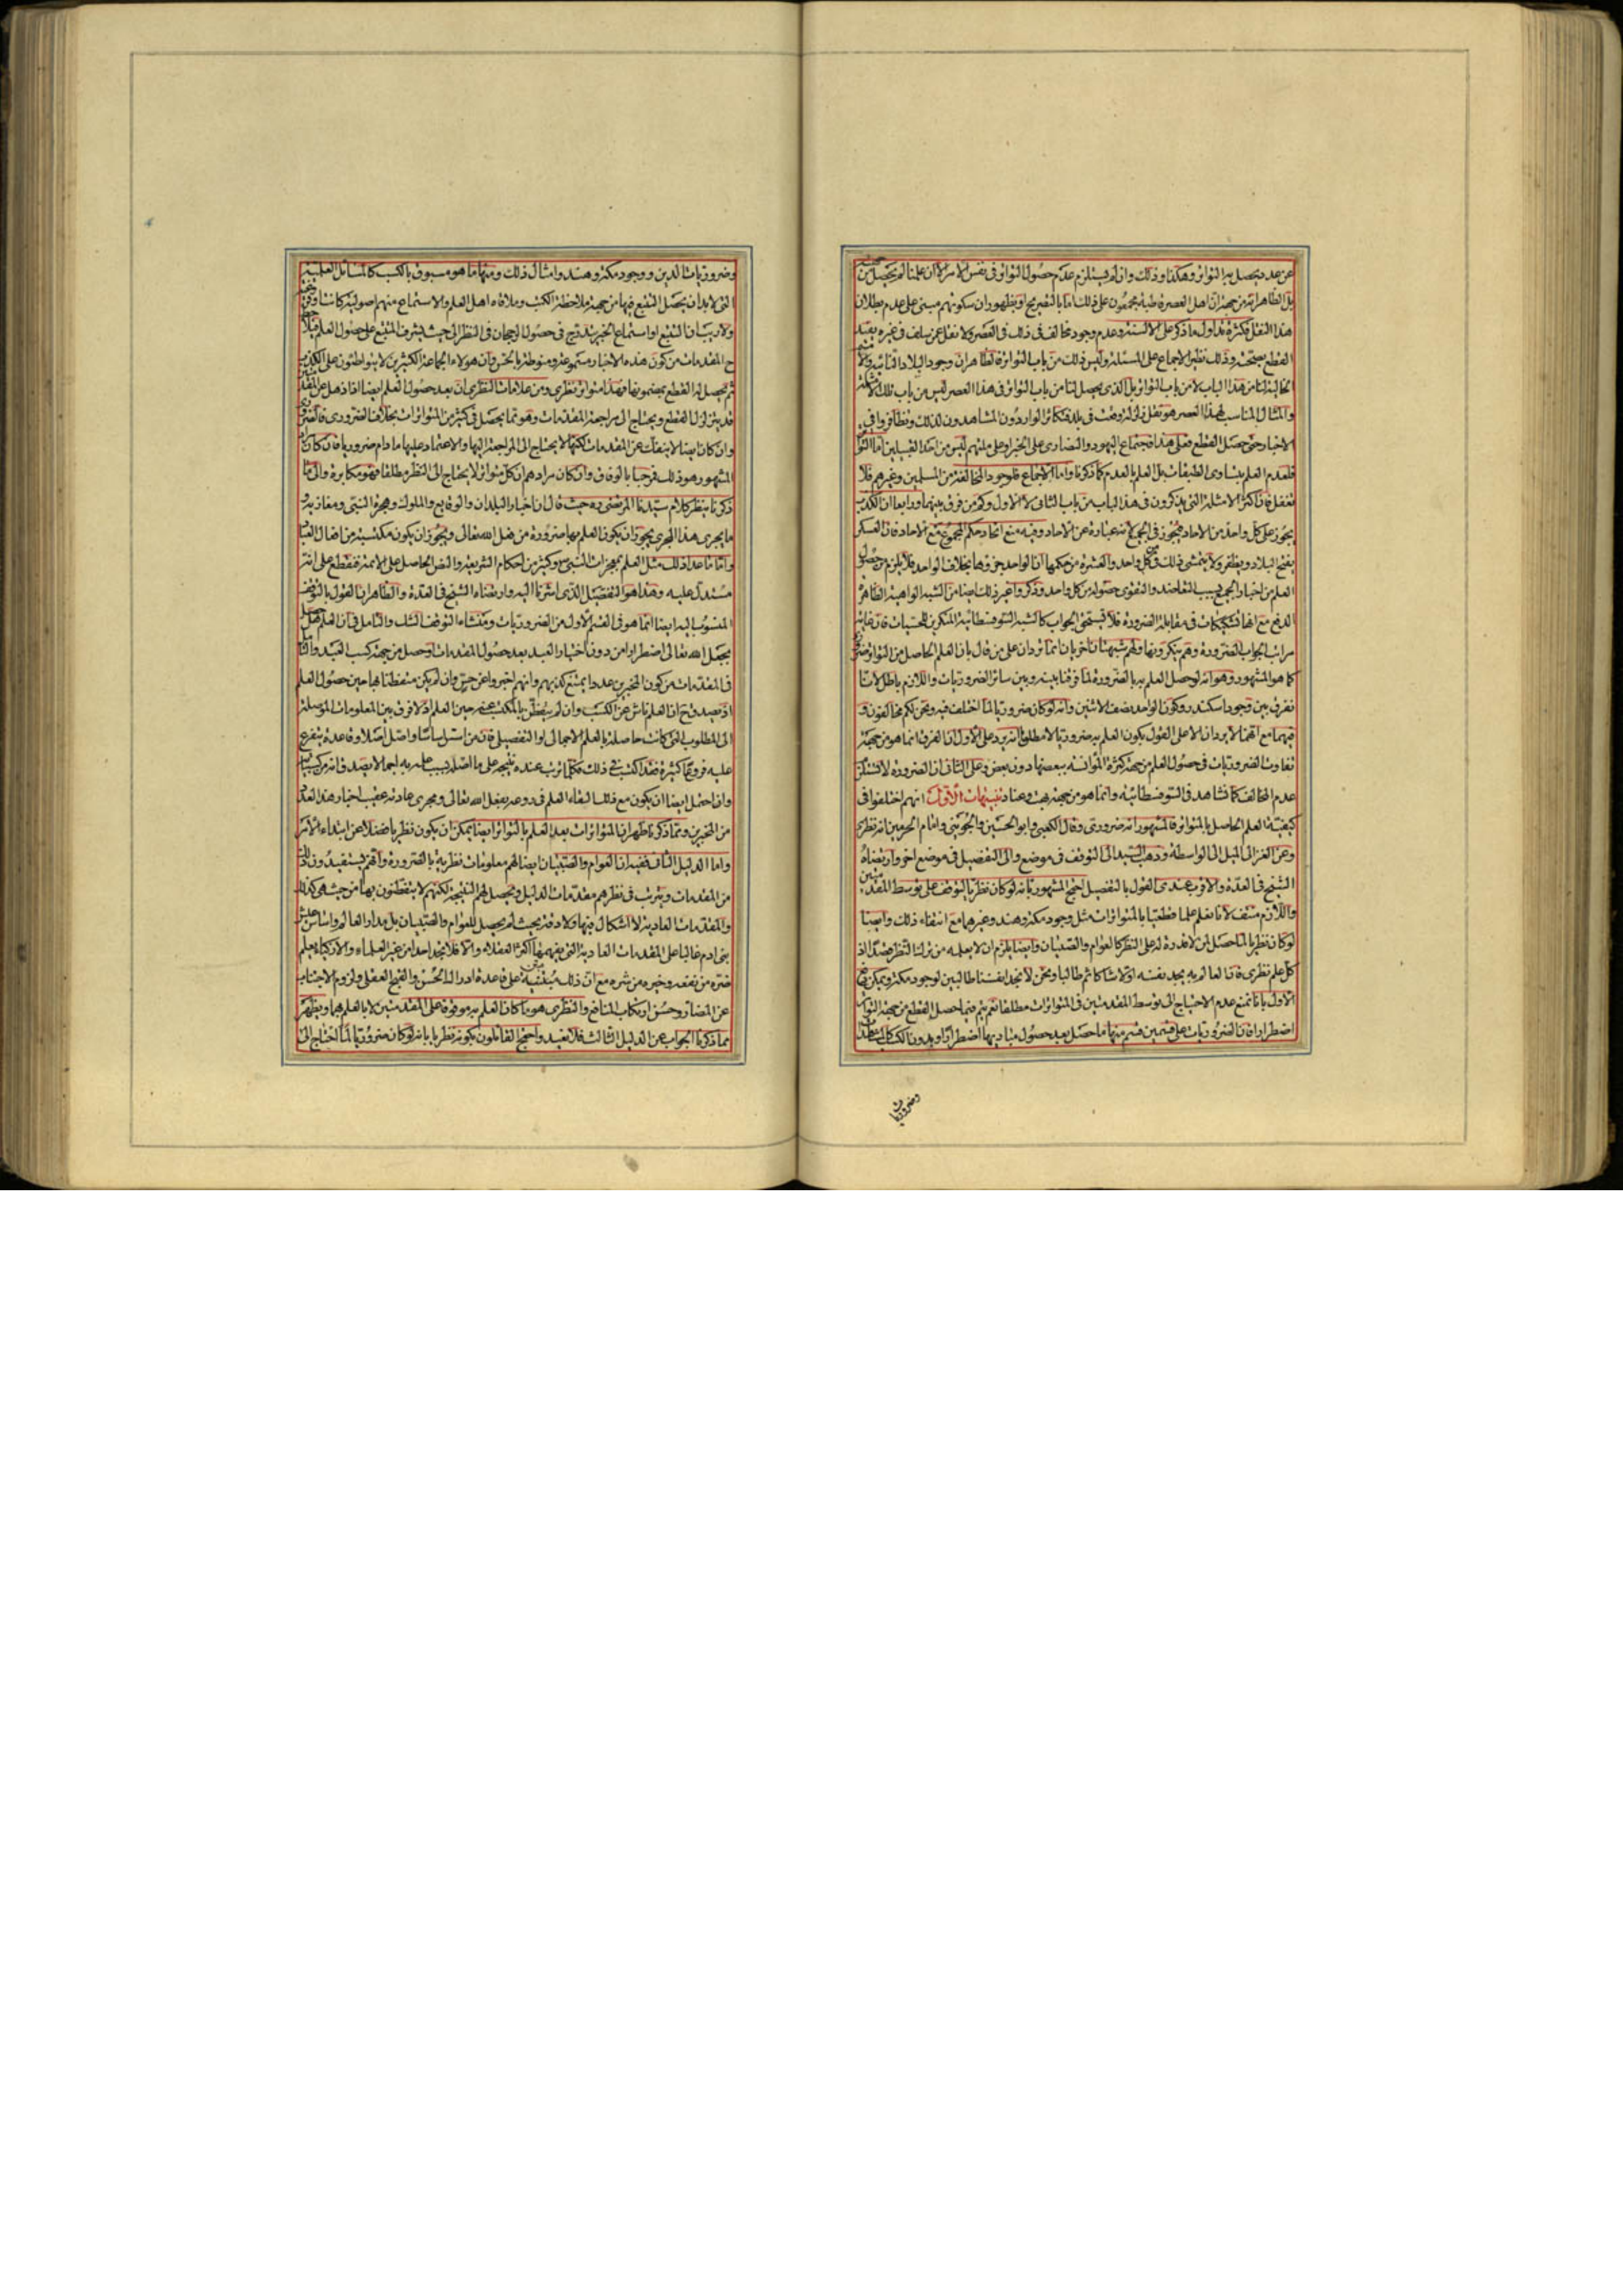 عن عدد يحصل به التواتر وهكذا وذلك وان لم يستلزم عدم حصول التواتر فى نفس الامر الا ان علمنا لم يحصل من جهته
بل الظاهر انه من جهة ان اهل العصر قاطبة مجمعون على ذلك اما بالتصريح او بظهور ان سكوتهم مبنى على عدم بطلان
هذا النقل فكثرة تداول ما ذكر على الالسنة وعدم وجود مخالف فى ذلك فى العصر ولا نقل عن سلف فى غيره يفيد
القطع بصحته وذلك نظير الاجماع على المسئلة وليس ذلك من باب التواتر فالظاهر ان وجود البلاد النائية والامم
الخالية لنا من هذا الباب لا من باب التواتر بل الذى يحصل لنا من باب التواتر فى هذا العصر ليس من باب تلك الامثلة
والمثال المناسب لهذا العصر هو نقل زلزلة وقعت فى بلدة فتكاثر الواردون المشاهدون لذلك وتظافروا فى
الاخبار حتى حصل القطع فعلى هذا فاجتماع اليهود والنصارى على الخبر وعلى ملتهم ليس من احد القبيلين اما التواتر
فلعدم العلم بتساوى الطبقات بل العلم بالعدم كما ذكرنا واما الاجماع فلوجود المخالفة من المسلمين وغيرهم فلا
تغفل فان اكثر الامثلة التى يذكرون فى هذا الباب من باب الثانى لا الاول وكم من فرق بينهما ورابعا ان الكذب
يجوز على كل واحد من الاحاد فيجوز فى الجميع لانه عبارة عن الاحاد وفيه منع اتحاد حكم المجموع مع الاحاد فان العسكر
يفتح البلاد ويظفر ولا يتمشى ذلك من كل واحد والعشرة من حكمها ان الواحد جزؤها بخلاف الواحد فلا يلزم من حصول
العلم من اخبار الجميع بسبب التعاضد والتقوى حصوله من كل واحد وذكروا غير ذلك ايضا من الشبه الواهية الظاهرة
الدفع مع انها تشكيكات فى مقابلة الضرورة فلا يستحق الجواب كالشبه السوفسطائية المنكرين للحسيات فان غاية
مراتب الجواب الضرورة وهم ينكرونها ولهم شبهتان اخريان انما تردان على من قال بان العلم الحاصل من التواتر ضرورى
كما هو المشهور وهو انه لو حصل العلم به بالضرورة لما فرقنا بينه وبين سائر الضروريات واللازم باطل لانا
نفرق بين وجود اسكندر وكون الواحد نصف الاثنين وانه لو كان ضروريا لما اختلف فيه ونحن لكم مخالفون و
فيهما مع انهما لا يردان الا على القول بكون العلم به ضروريا لا مطلقا انه يرد على الاول ان الفرق انما هو من جهة
تفاوت الضروريات فى حصول العلم من جهة كثرة الموانسة ببعضها دون بعض وعلى الثانى ان الضرورة لا تستلزم
عدم المخالف كما نشاهد فى السوفسطائية وانما هو من جهة بهت وعناد تنبيهات الاول انهم اختلفوا فى
كيفية العلم الحاصل بالمتواتر فالمشهور انه ضرورى وقال الكعبى وابو الحسين والجوينى وامام الحرمين انه نظرى
وعن الغزالى الميل الى الواسطة وذهب السيد الى التوقف فى موضع والى التفصيل فى موضع اخر وارتضاه
الشيخ فى العدة والاقرب عندى القول بالتفصيل احتج المشهور بانه لو كان نظريا لتوقف على توسط المقدمتين
واللازم منتف لانا نعلم علما قطعيا بالمتواترات مثل وجود مكة وهند وغيرهما مع انتفاء ذلك وايضا
لو كان نظريا لما حصل لمن لا قدرة له على النظر كالعوام والصبيان وايضا يلزم ان لا يعلمه من ترك النظر قصدا اذ
كل علم نظرى فان العالم به يجد نفسه اولا شاكا ثم طالبا ونحن لا نجد انفسنا طالبين لوجود مكة ويمكن دفع
الاول بانا نمنع عدم الاحتياج الى توسط المقدمتين فى المتواترات مطلقا نعم يتم فيما حصل القطع من جهة التواتر
اضطرارا فان الضروريات على قسمين قسم منها ما حصل بعد حصول مباديها اضطرارا وبدون الكسب
وضروريات
وضروريات الدين ووجود مكة وهند وامثال ذلك ومنها ما هو مسبوق بالكسب كالمسائل العلمية
التى لا بد ان يحصل التتبع فيها من جهة ملاحظة الكتب وملاقاة اهل العلم والاستماع منهم اصولية كانت او فقهية
ولا ريب ان التتبع او استماع الخبر يتدرج فى حصول الرجحان فى النظر الى حيث يشرف المتتبع على حصول العلم فيلاحظ
ح المقدمات من كون هذه الاخبار مسموعة ومنوطة بالحس وان هولاء الجماعة الكثيرين لا يتواطئون على الكذب
ثم يحصل له القطع بمضمونها فهذا متواتر نظرى ومن علامات النظرى ان بعد حصول العلم ايضا اذا ذهل عن المقدمتين
قد يتزلزل القطع ويحتاج الى مراجعة المقدمات وهو مما يحصل فى كثير من المتواترات بخلاف الضرورى فالضرورى
وان كان ايضا لا ينفك عن المقدمات لكنها لا يحتاج الى المراجعة اليها والاعتماد عليها ما دام ضروريا فان كان مراد
المشهور هو ذلك فمرحبا بالوفاق وان كان مرادهم ان كل متواتر لا يحتاج الى النظر مطلقا فهو مكابرة والى ما
ذكرنا ينظر كلام سيدنا المرتضى ره حيث قال ان اخبار البلدان والوقايع والملوك وهجرة النبى ومغازيه و
ما يجرى هذا المجرى يجوز ان يكون العلم بها ضرورة من فعل الله تعالى ويجوز ان يكون مكتسبة من افعال العباد
واما ما عدا ذلك مثل العلم بمعجزات النبى ص وكثير من احكام الشريعة والنص الحاصل على الائمة فنقطع على انه
مستدل عليه وهذا هو التفصيل الذى اشرنا اليه وارتضاه الشيخ فى العدة والظاهر ان القول بالتوقف
المنسوب اليه ايضا انما هو فى القسم الاول من الضروريات ومنشاء التوقف الشك والتامل فى ان العلم هل حصل
بجعل الله تعالى اضطرارا من دون اختيار العبد بعد حصول المقدمات او حصل من جهة كسب العبد والتامل
فى المقدمات من كون المخبرين عددا يمتنع كذبهم وانهم اخبروا عن حس وان لم يكن متفطنا بها حين حصول العلم
اذ يصدق ح ان العلم ناش عن الكسب وان لم يتفطن بالمكتسب عنه حين العلم اذ لا فرق بين المعلومات الموصلة
الى المطلوب التى كانت حاصلة بالعلم الاجمالى او التفصيلى فان من اسس اساسا واصل اصلا وقاعدة يتفرع
عليه فروعا كثيرة فقد اكتسب فى ذلك فكلما ترتب عنده نتيجة على ما اصله بسبب علمه به اجمالا يصدق انه من كسبياته
واذا احتمل ايضا ان يكون مع ذلك ابقاء العلم فى روعه بفعل الله تعالى ومجرى عادته عقيب اخبار هذا العدد
من المخبرين ومما ذكرنا ظهر ان المتواترات بعد العلم بالتواتر ايضا يمكن ان يكون نظريا فضلا عن ابتداء الامر
واما الدليل الثانى ففيه ان العوام والصبيان ايضا لهم معلومات نظرية بالضرورة وانهم يستفيدون ذلك
من المقدمات ويترتب فى نظرهم مقدمات الدليل ويحصل لهم النتيجة لكنهم لا يتفطنون بها من حيث هى كذلك
والمقدمات العادية لا اشكال فيها ولا دقة بحيث لم يحصل للعوام والصبيان بل مدار العالم واساس عيش
بنى ادم غالبا على المقدمات العادية التى يفهمها اكثر العقلاء والا فلا نجد احدا من غير العلماء والاذكياء يعلم
ضره من نفعه وخيره من شره مع ان ذلك مبتنية على قاعدة ادراك الحسن والقبح العقلى ولزوم الاجتناب
عن المضار وحسن ارتكاب المنافع والنظرى هو ما كان العلم به موقوفا على المقدمتين لا بالعلم بهما ويظهر
مما ذكرنا الجواب عن الدليل الثالث فلا نعيد واحتج القائلون بكونه نظريا بانه لو كان ضروريا لما احتاج الى